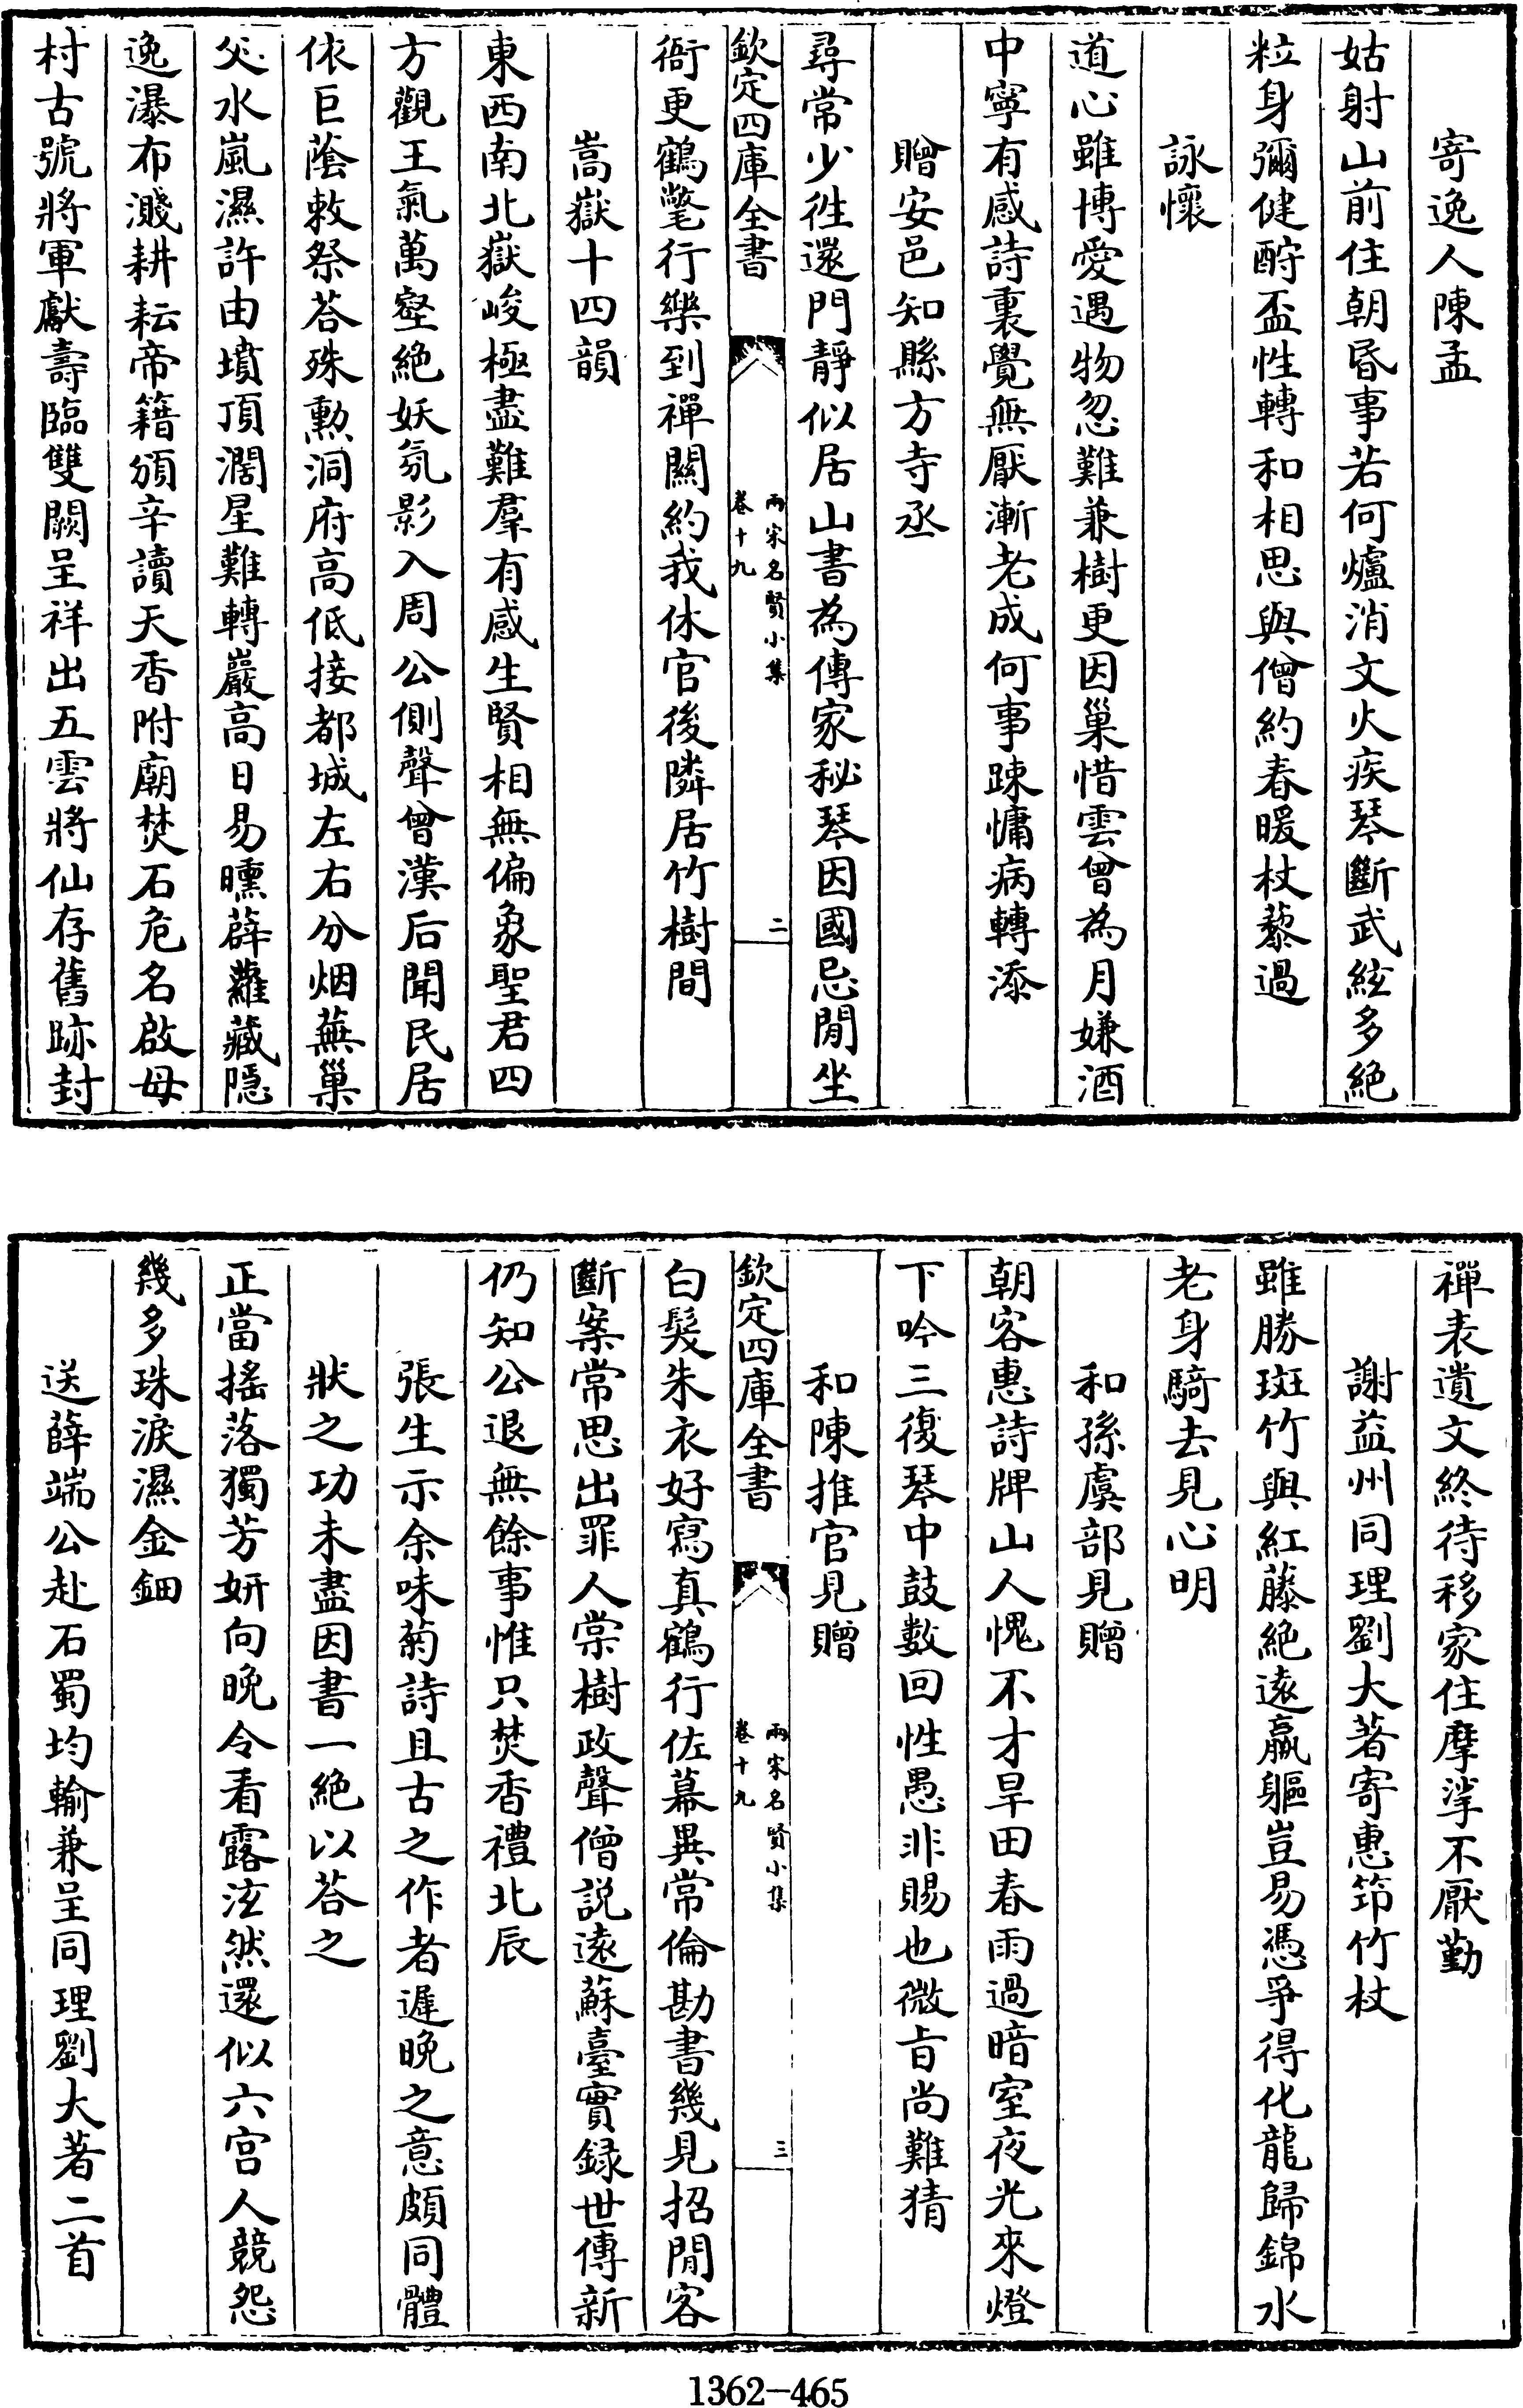 寄逸人陳孟
姑射山前住朝昏事若何爐消文火疾琴斷武絃多絶
粒身彌健酧盃性轉和相思與僧約春暖杖藜過
詠懷
道心雖博愛遇物忽難兼樹更因巢惜雲曾為月嫌酒
中寧有感詩裏覺無厭漸老成何事踈慵病轉添
贈安邑知縣方寺丞
尋常少徃還門靜似居山書為傳家秘琴因國忌閒坐
欽定四庫全書
兩宋名賢小集
卷十九
二
衙更鶴氅行樂到禪關約我休官後隣居竹樹間
嵩嶽十四韻
東西南北嶽峻極盡難羣有感生賢相無偏象聖君四
方觀王氣萬壑絶妖氛影入周公側聲曾漢后聞民居
依巨蔭敕祭荅殊勲洞府高低接都城左右分烟蕪巢
父水嵐濕許由墳頂濶星難轉巖高日易曛薜蘿藏隠
逸瀑布濺耕耘帝籍頒辛讀天香附廟焚石危名啟母
村古號將軍獻壽臨雙闕呈祥出五雲將仙存舊跡封
禪表遺文終待移家住摩挲不厭勤
謝益州同理劉大著寄惠笻竹杖
雖勝斑竹與紅藤絶遠羸軀豈易憑爭得化龍歸錦水
老身騎去見心明
和孫虞部見贈
朝客惠詩牌山人愧不才旱田春雨過暗室夜光來燈
下吟三復琴中鼓數回性愚非賜也微旨尚難猜
和陳推官見贈
欽定四庫全書
兩宋名賢小集
卷十九
三
白髮朱衣好寫真鶴行佐幕異常倫勘書幾見招閒客
斷案常思出罪人棠樹政聲僧説遠蘇臺實録世傳新
仍知公退無餘事惟只焚香禮北辰
張生示余味菊詩且古之作者遲晚之意頗同體
狀之功未盡因書一絶以荅之
正當搖落獨芳妍向晚令看露泫然還似六宮人競怨
幾多珠淚濕金鈿
送薛端公赴石蜀均輸兼呈同理劉大著二首
1362-465